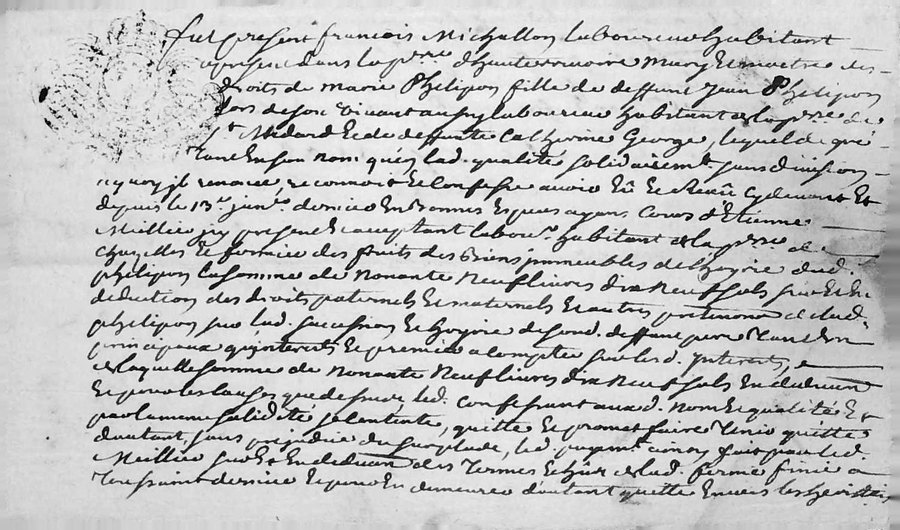 fut present francois Michallon laboureur habitant
a present dans la p.sse d'hauterivoire mary et maistre des
droits de marie Phelipon fille de deffunt Jean Phelipon
lors de son vivant aussy laboureur habitant a la p.sse de
st Medard et de deffunte Catherine George, lequel de gré
tant en son nom qu'en lad. qualité solidairemt sans division
a quoy il renonce, reconnoit et confesse avoir Eû et Receû cy devant et
depuis le 13e janv.er dernier en bonnes especes ayant cours d'Etienne
Meillier icy present et acceptant labour. habitant a la p.sse de
chazelles et fermier des fruits des biens immeubles de l'hoyrie dud.
phelipon la somme de Nonante Neuf livres dix Neuf sols sur et en
deduction des droits paternels et maternels et autres
phelipon sur lad. succession et hoyrie de sond. deffunt pere tant en
principaux qu'interets et premier a compte sur lesd. Interets,
de laquelle somme de Nonante Neuf livres dix Neuf sols en deduction
et pour les causes que dessus led. confessant auxd. nom et qualité et
par la meme solidité se contente, quitte et promet faire tenir quitte
d'autant, sans prejudice du surplus, led. payemt ainsy fait par led.
Meillier sur et en deduction des termes echus de lad. ferme finie a
Toussaint dernier et pour en demeurer d'autant quitte envers les heritiers